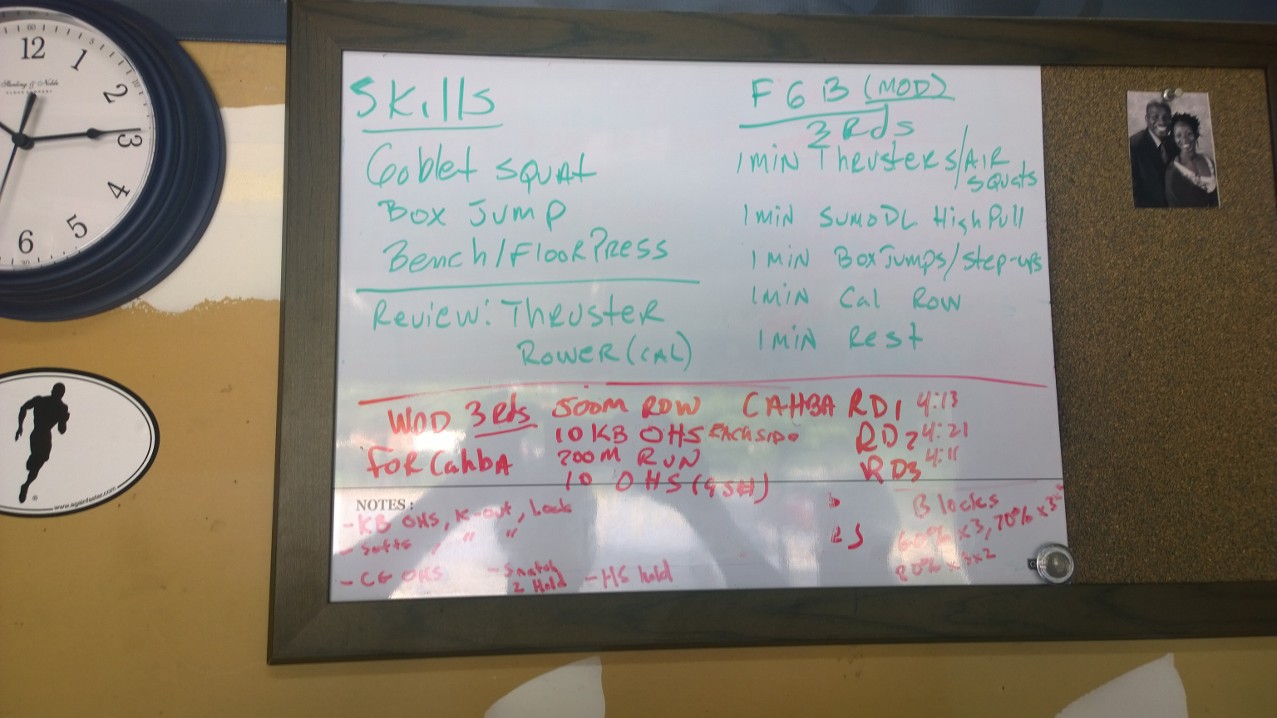 12
1
2
3
4
5
6
Skills
Goblet SQUAt
Box Jump
Bench/FlooR Press
Review: ThRusteR
RoweR (CAL)
F G B (MOD)
3 Rds
1 MIN ThRusteRs/AIR SQUAts
1 MIN SUMO DL High Pull
1 MIN Box Jumps/Step-ups
1 MIN Cal Row
1 MIN Rest
WOD 3 Rds 500M ROW
10 KB OHS EACH SIDE
foR CAhbA 200M RUN
10 OHS (95#)
CAHBA RD1 4:13
RD2 4:21
RD3 4:11
NOTES:
- KB OHS, K-out, Lock
- Sotts, " "
- CG OHS - Snatch 2 Hold - HS hold
Blocks
60% x 3, 70% x 3
80% x 3 x 2